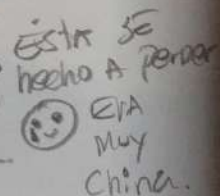 ESTA SE
hecho A perder
ERA
MUY
China.